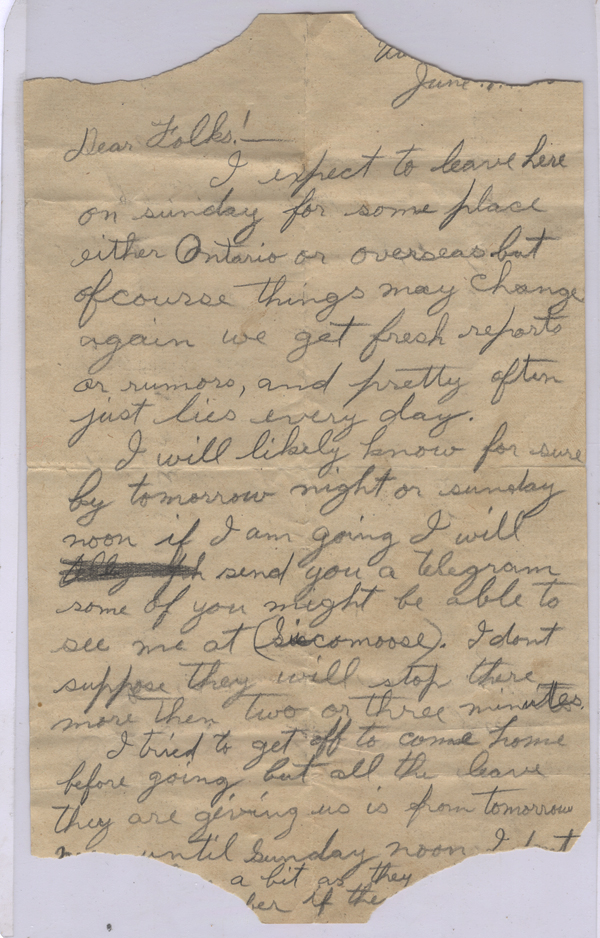 June
Dear Folks!—
I expect to leave here
on sunday for some place
either Ontario or overseas but
ofcourse things may change
again we get fresh reports
or rumors, and pretty often
just lies every day.
I will likely know for sure
by tomorrow night or sunday
noon if I am going I will
send you a telegram
some of you might be able to
see me at (Siccomoose). I dont
suppose they will stop there
more then two or three minutes.
I tried to get off to come home
before going but all the leave
they are giving us is from tomorrow
until Sunday noon I
a bit as they
if the